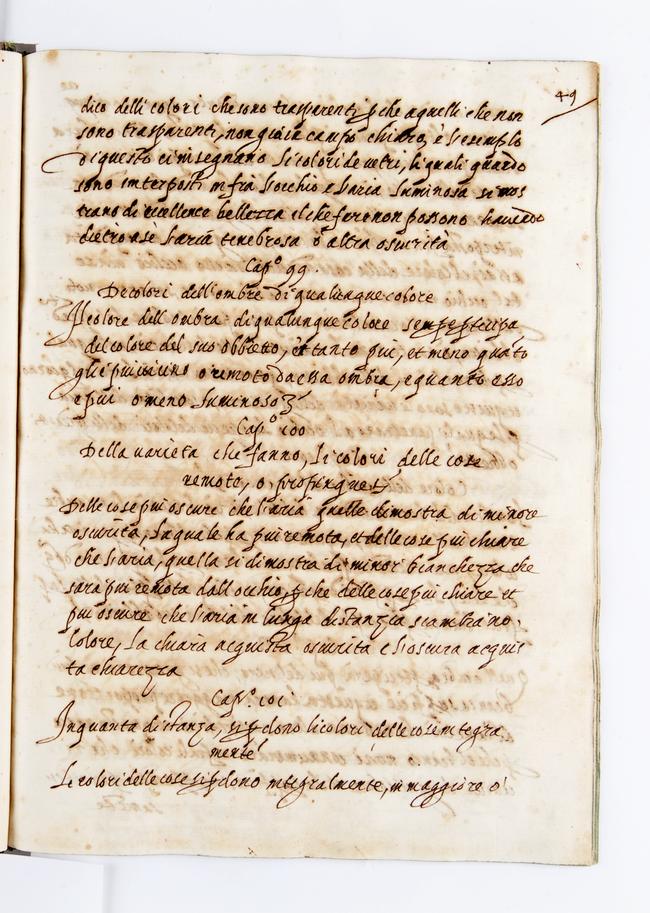 49
dico delli colori che sono trasparenti ꝑche a quelli che non
sono trasparenti, non giova campo chiaro, è l'esemplo
di questo ci insegnano li colori de vetri, li quali quando
sono interposti infra l'occhio e l'aria luminosa si mos
trano di eccellence bellezza ilche fare non possono havendo
dietro a sè l'aria tenebrosa o altra oscurità
Capº 99.
De colori dell'ombre di qualunque colore
Il colore dell ombra di qualunque colore sempre
del colore del suo obbietto, et tanto piu, et meno quãto
gli è piu vicino o remoto da essa ombra, e quanto esso
e piu o meno luminoso
Capº 100
Della varieta che fanno, li colori delle cose
remote, o, propinque
Delle cose piu oscure che l'aria quelle dimostra di minore
oscurità, la quale ha piu remota, et delle cose piu chiare
che l'aria, quella si dimostra di minor bianchezza che
sara piu remota dall occhio, ꝑche delle cose piu chiare et
piu oscure che l'aria in lunga distanzia scambiano
Colore, la chiara acquista oscurita e l'oscura acquis
ta chiarezza
Capº. 101
In quanta distanza, si ꝑdono li colori delle cose integra
mente
Li colori delle cose si ꝑdono integralmente, in maggiore o